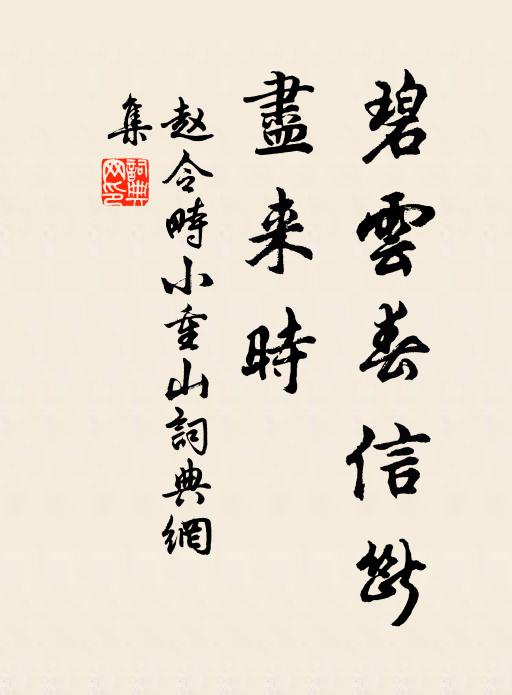 碧雲春信斷
盡来時
赵令畤小重山詞典網
集
詞典
网印